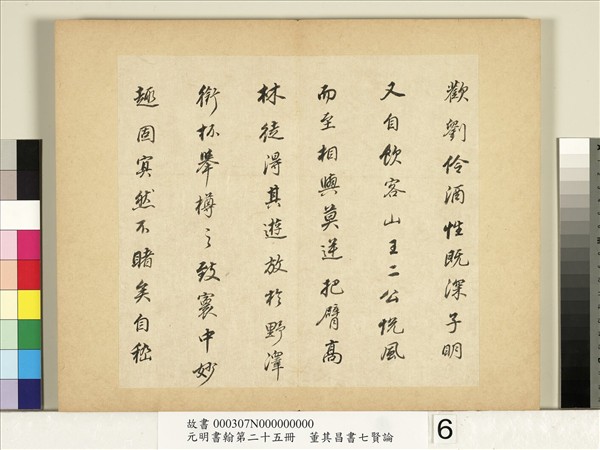 歡劉伶酒性既深子明
又自飲客山王二公悅風
而至相與莫逆把臂高
林徒得其遊放於野澤
銜杯舉樽之致寰中妙
趣固寞然不睹矣自嵇
故書 000307N000000000
元明書翰第二十五冊　董其昌書七賢論
6